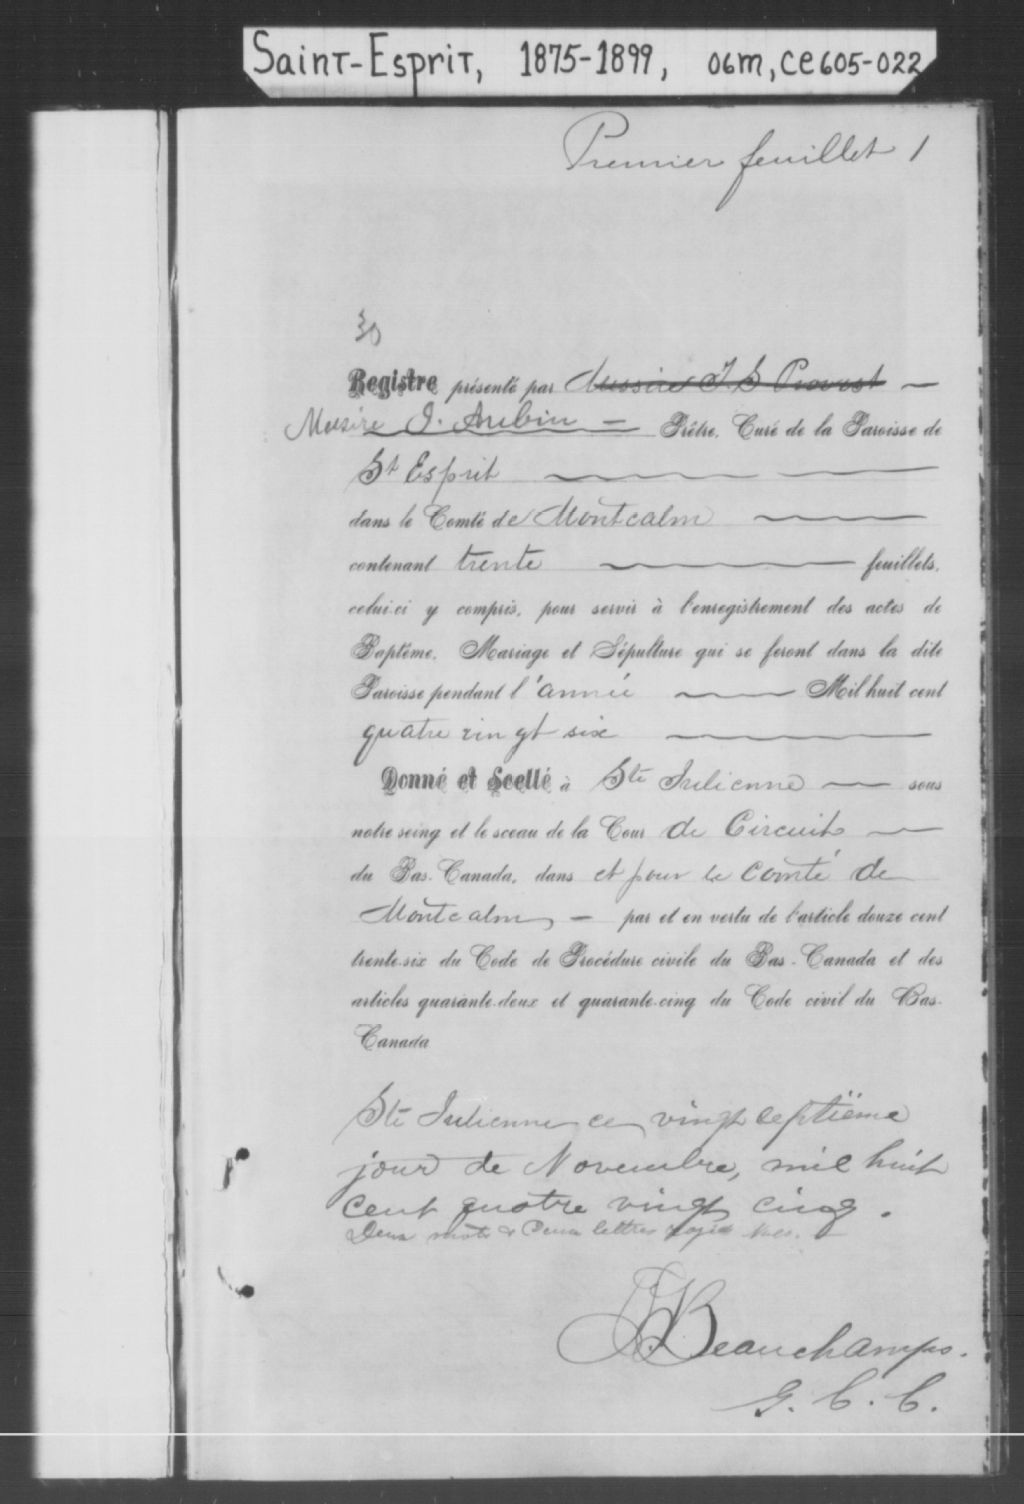 Saint-Esprit, 1875-1899, 06m, ce605-022
Premier feuillet 1
30
Registre présenté par Messire J. S Provost
Messire J. Aubin — Prêtre, Curé de la Paroisse de
St Esprit
dans le Comté de Montcalm
contenant trente feuillets,
celui-ci y compris, pour servir à l'enregistrement des actes de
Baptême, Mariage et Sépulture qui se feront dans la dite
Paroisse pendant l'année Mil huit cent
quatre vingt six
Donné et Scellé à Ste Julienne sous
notre seing et le sceau de la Cour de Circuit
du Bas-Canada, dans et pour le comté de
Montcalm — par et en vertu de l'article douze cent
trente-six du Code de Procédure civile du Bas-Canada et des
articles quarante-deux et quarante-cinq du Code civil du Bas-
Canada
Ste Julienne ce vingt septième
jour de Novembre, mil huit
cent quatre vingt cinq.
Deux mots & Deux lettres rayés nuls.
Beauchamps.
G. C. C.